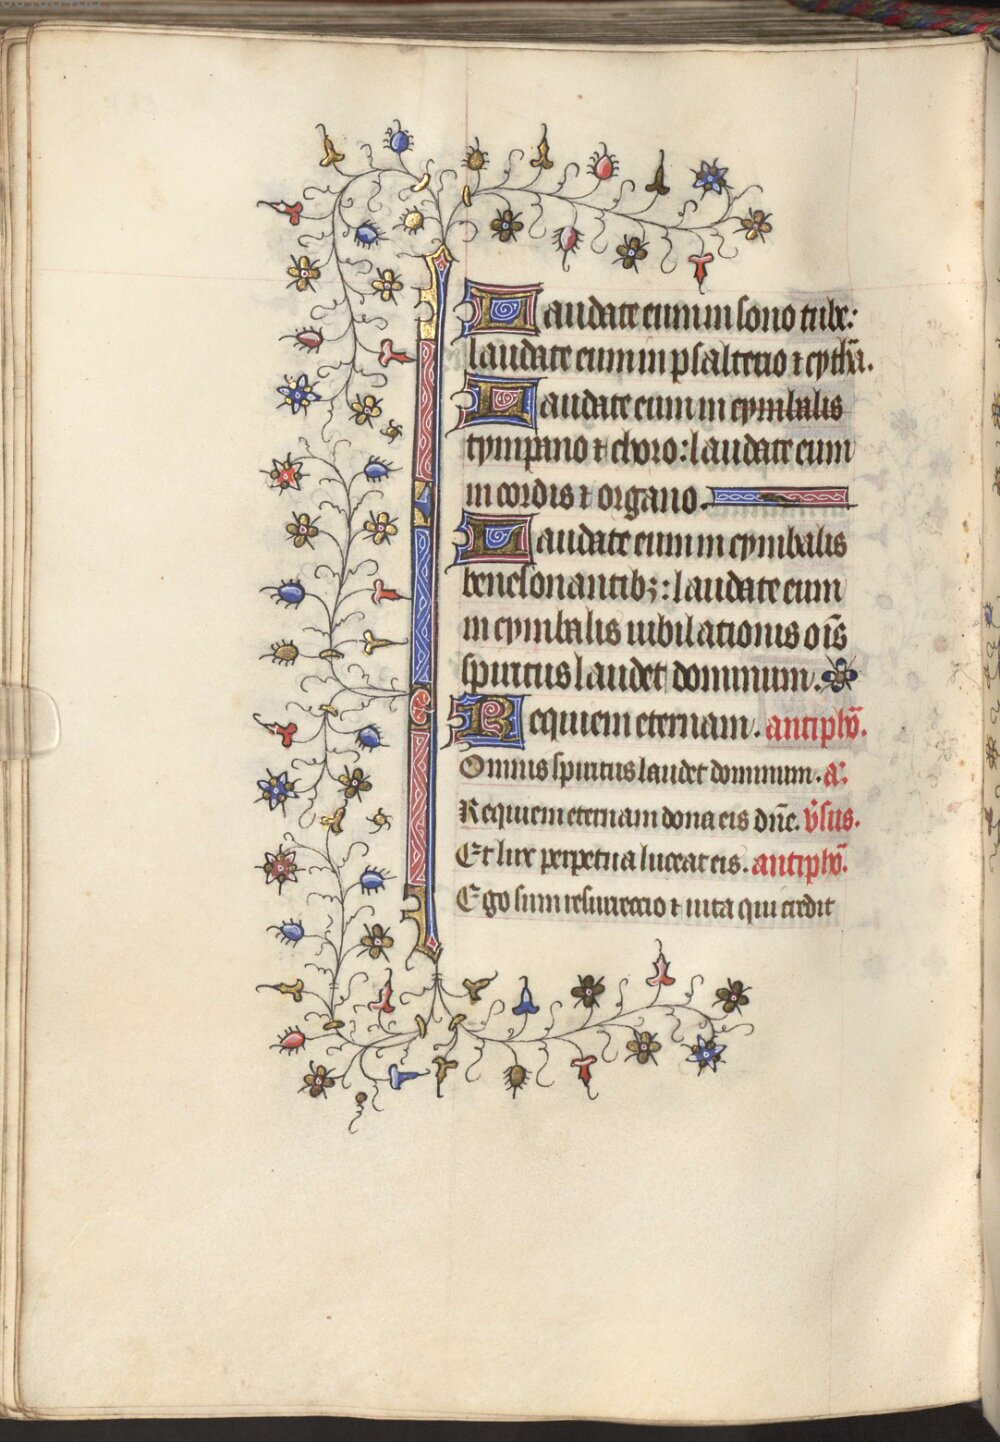 Laudate eum in sono tube:
laudate eum in psalterio ⁊ cythā.
Laudate eum in cymbalis
tympano ⁊ choro: laudate eum
in cordis ⁊ organo.
Laudate eum in cymbalis
benesonantibꝫ: laudate eum
in cymbalis iubilationis oīs
spiritus laudet dominum.
Requiem eternam. antiphō.
Omnis spiritus laudet dominum. a:
Requiem eternam dona eis dn̄e. v̄sus.
Et lux perpetua luceat eis. antiphō.
Ego sum resurreccio ⁊ uita qui credit